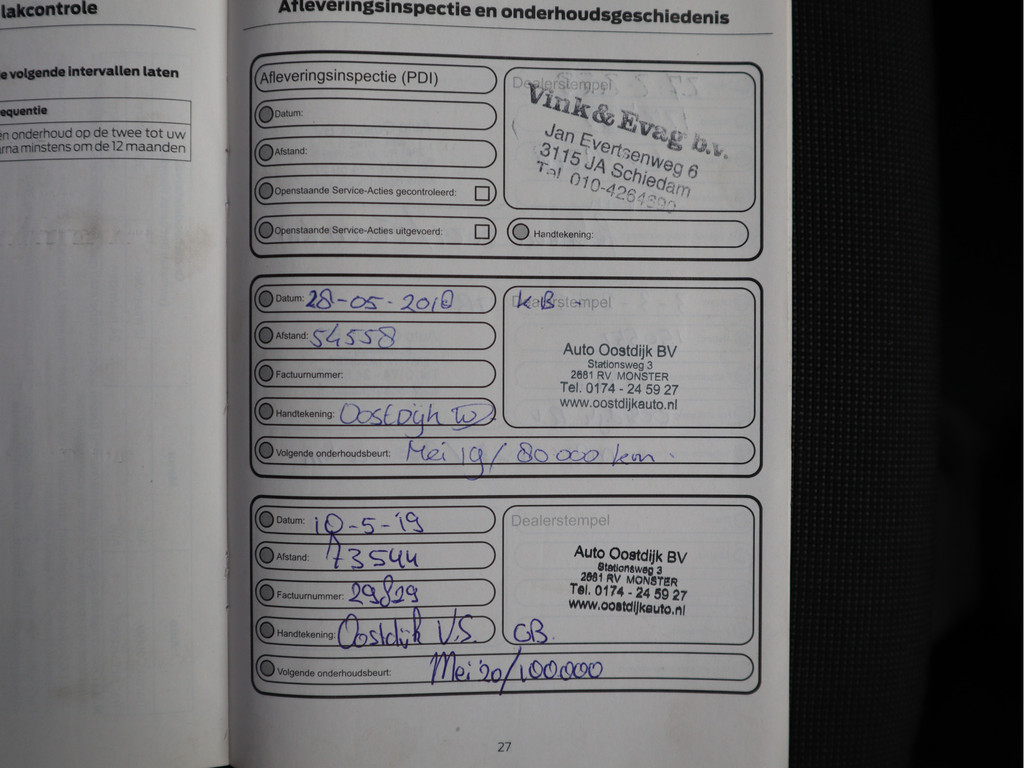 lakcontrole
e volgende intervallen laten
equentie
én onderhoud op de twee tot uw
arna minstens om de 12 maanden
Afleveringsinspectie en onderhoudsgeschiedenis
Afleveringsinspectie (PDI)
Datum:
Afstand:
Openstaande Service-Acties gecontroleerd:
Openstaande Service-Acties uitgevoerd:
Dealerstempel
Vink & Evag b.v.
Jan Evertsenweg 6
3115 JA Schiedam
Tel 010-4264690
Handtekening:
Datum: 28-05-2018
Afstand: 54558
Factuurnummer:
Handtekening: Oostdijk
Volgende onderhoudsbeurt: Mei 19/80000 km.
Dealerstempel
KB-
Auto Oostdijk BV
Stationsweg 3
2681 RV MONSTER
Tel. 0174 - 24 59 27
www.oostdijkauto.nl
Datum: 10-5-'19
Afstand: 73544
Factuurnummer: 29829
Handtekening: Oostdijk V.S.
Volgende onderhoudsbeurt: Mei '20/100.000
Dealerstempel
Auto Oostdijk BV
Stationsweg 3
2681 RV MONSTER
Tel. 0174 - 24 59 27
www.oostdijkauto.nl
GB.
27